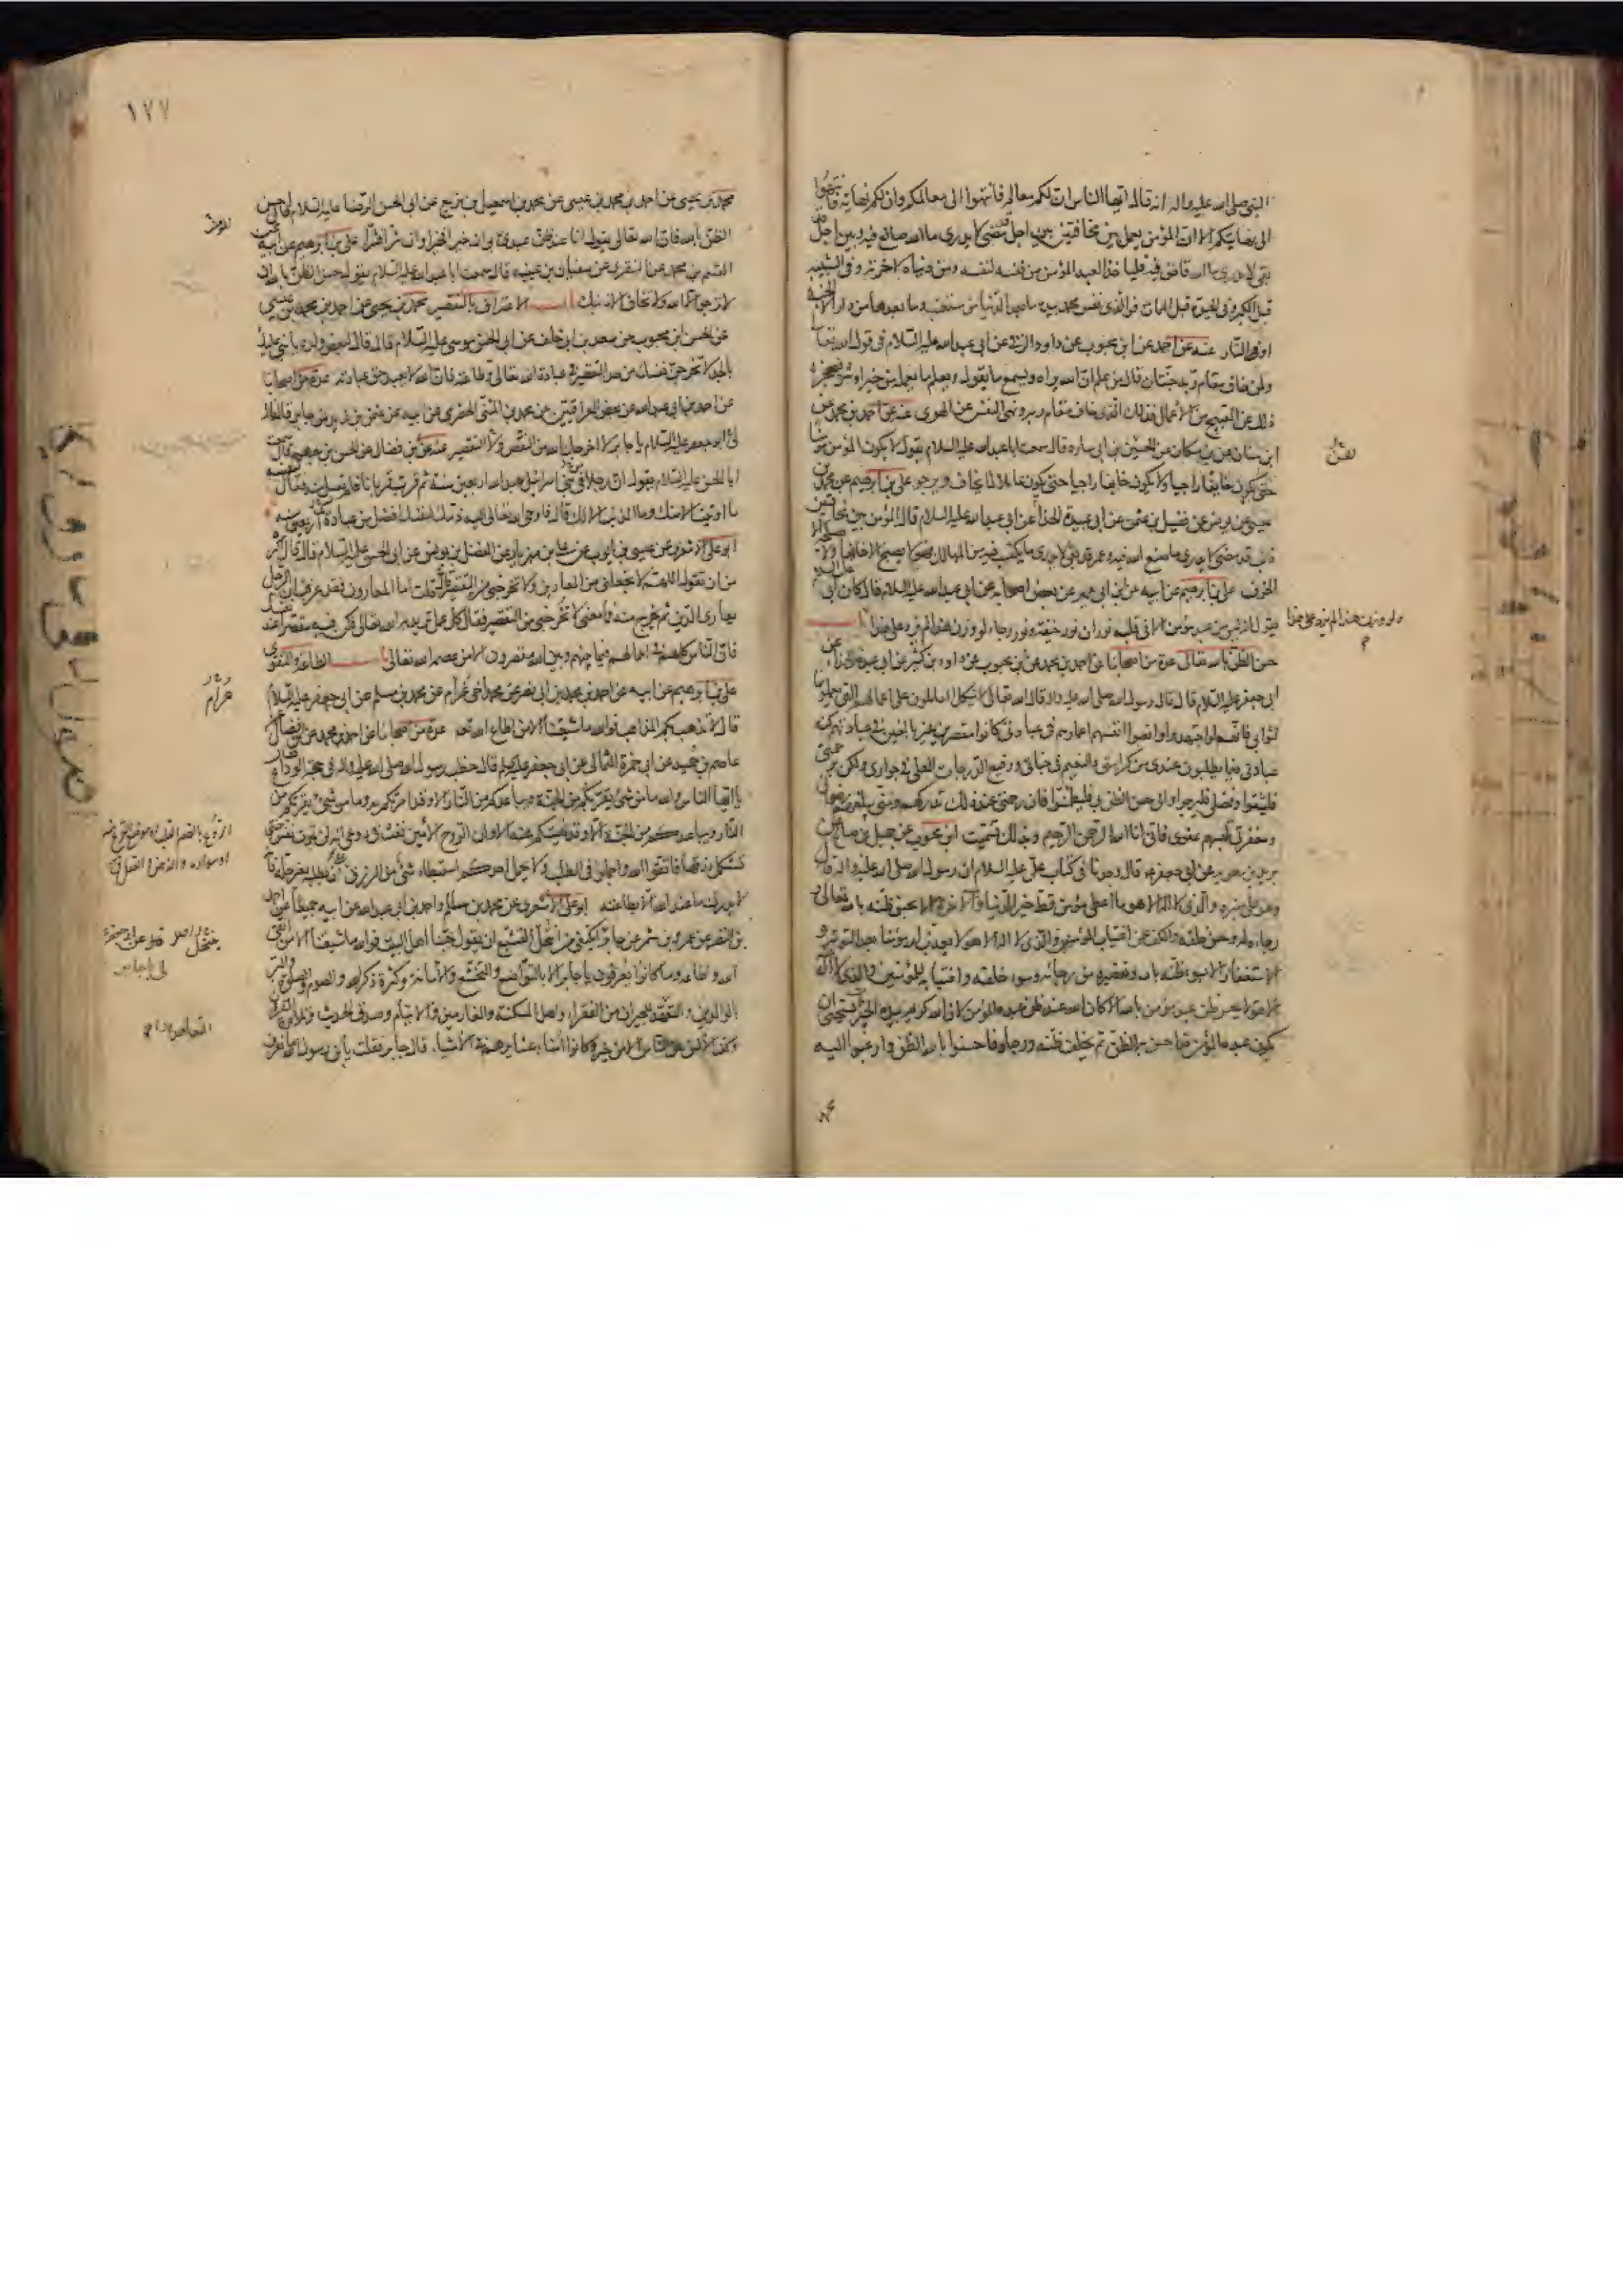 النبي صلى الله عليه واله انه قال ايها الناس ان لكم معالم فانتهوا الى معالمكم وان لكم نهاية فانتهوا
الى نهايتكم الا ان المؤمن يعمل بين مخافتين بين اجل قد مضى لا يدري ما الله صانع فيه وبين اجل قد
بقى لا يدري ما الله قاض فيه فلياخذ العبد المؤمن من نفسه لنفسه ومن دنياه لاخرته وفي الشبيبة
قبل الكبر وفي الحيوة قبل الممات فوالذي نفس محمد بيده ما بعد الدنيا من مستعتب وما بعدها من دار الا الجنة
او النار عنه عن احمد عن ابن محبوب عن داود الرقي عن ابي عبدالله عليه السلام في قول الله تعالى
ولمن خاف مقام ربه جنتان قال من علم ان الله يراه ويسمع ما يقول ويعلم ما يعمله من خير او شر فيحجزه
ذلك عن القبيح من الاعمال فذلك الذي خاف مقام ربه ونهى النفس عن الهوى عنه عن احمد بن محمد عن
ابن سنان عن ابن مسكان عن الحسن بن ابي ساره قال سمعت ابا عبدالله عليه السلام يقول لا يكون المؤمن مؤمنا
حتى يكون خايفا راجيا ولا يكون خايفا راجيا حتى يكون عاملا لما يخاف ويرجو علي بن ابرهيم عن محمد بن
عيسى عن يونس عن فضيل بن عثمن عن ابي عبيدة الحذا عن ابي عبدالله عليه السلام قال المؤمن بين مخافتين
ذنب قد مضى لا يدري ما صنع الله فيه وعمر قد بقي لا يدري ما يكتسب فيه من المهالك فهو لا يصبح الا خايفا ولا يصلحه الا
الخوف علي بن ابرهيم عن ابيه عن ابن ابي عمير عن بعض اصحابه عن ابي عبدالله عليه السلام قال كان ابي
يقول انه ليس من عبد مؤمن الا في قلبه نوران نور خيفة ونور رجاء لو وزن هذا لم يزد على هذا باب
حسن الظن بالله تعالى عدة من اصحابنا عن احمد بن محمد عن ابن محبوب عن داود بن كثير عن ابي عبيدة الحذاء عن
ابي جعفر عليه السلام قال قال رسول الله صلى الله عليه واله قال الله تعالى لا يتكل العاملون على اعمالهم التي يعملونها
لثوابي فانهم لو اجتهدوا واتعبوا انفسهم اعمارهم في عبادتي كانوا مقصرين غير بالغين في عبادتهم كنه
عبادتي فيما يطلبون عندي من كرامتي والنعيم في جناتي ورفيع الدرجات العلى في جواري ولكن برحمتي
فليثقوا وفضلي فليرجوا والى حسن الظن بي فليطمئنوا فان رحمتي عند ذلك تدركهم ومني يبلغهم رضواني
ومغفرتي تلبسهم عفوي فاني انا الله الرحمن الرحيم وبذلك تسميت ابن محبوب عن جميل بن صالح عن
بريد بن معوية عن ابي جعفر قال وجدنا في كتاب علي عليه السلام ان رسول الله صلى الله عليه واله قال
وهو على منبره والذي لا اله الا هو ما اعطي مؤمن قط خير الدنيا والاخرة الا بحسن ظنه بالله تعالى و
رجائه له وحسن خلقه والكف عن اغتياب المؤمنين والذي لا اله الا هو لا يعذب الله مؤمنا بعد التوبة و
الاستغفار الا بسوء ظنه بالله وتقصيره من رجائه وسوء خلقه واغتيابه للمؤمنين والذي لا اله
الا هو لا يحسن ظن عبد مؤمن بالله الا كان الله عند ظن عبده المؤمن لان الله كريم بيده الخير يستحيى ان
يكون عبده المؤمن قد احسن به الظن ثم يخلف ظنه ورجاه فاحسنوا بالله الظن وارغبوا اليه
ولو وزن هذا لم يزد على هذا
١٧٧
محمد بن يحيى عن احمد بن محمد بن عيسى عن محمد بن اسمعيل بن بزيع عن ابي الحسن الرضا عليه السلام قال احسن
الظن بالله فان الله تعالى يقول انا عند ظن عبدي بي ان خيرا فخيرا وان شرا فشرا علي بن ابرهيم عن ابيه عن
القسم بن محمد عن المنقري عن سفيان بن عيينه قال سمعت ابا عبدالله عليه السلام يقول حسن الظن بالله ان
لا ترجو الا الله ولا تخاف الا ذنبك باب الاعتراف بالتقصير محمد بن يحيى عن احمد بن محمد بن عيسى
عن الحسن بن محبوب عن سعد بن ابي خلف عن ابي الحسن موسى عليه السلام قال قال لبعض ولده يا بني عليك
بالجد لا تخرجن نفسك من حد التقصير في عبادة الله تعالى وطاعته فان الله لا يعبد حق عبادته عدة من اصحابنا
عن احمد بن ابي عبدالله عن بعض العراقيين عن محمد بن المثنى الحضرمي عن ابيه عن عثمن بن زيد عن جابر قال قال
لي ابو جعفر عليه السلام يا جابر لا اخرجك الله من النقص ولا التقصير عنه عن ابن فضال عن الحسن بن الجهم قال سمعت
ابا الحسن عليه السلام يقول ان رجلا في بني اسرائيل عبد الله اربعين سنة ثم قرب قربانا فلم يقبل منه فقال لنفسه
ما اوتيت الا منك وما الذنب الا لك قال فاوحى الله تعالى اليه ذمك لنفسك افضل من عبادتك اربعين سنه
ابو علي الاشعري عن عيسى بن ايوب عن علي بن مهزيار عن الفضل بن يونس عن ابي الحسن عليه السلام قال قال اكثر
من ان تقول اللهم لا تجعلني من المعارين ولا تخرجني من التقصير قال قلت اما المعارون فقد عرفت ان الرجل
يعار الدين ثم يخرج منه فما معنى لا تخرجني من التقصير فقال كل عمل تريد به الله تعالى فكن فيه مقصرا عند نفسك
فان الناس كلهم في اعمالهم فيما بينهم وبين الله مقصرون الا من عصمه الله تعالى باب الطاعة والتقوى
علي بن ابرهيم عن ابيه عن احمد بن محمد بن ابي نصر عن محمد اخي عرام عن محمد بن مسلم عن ابي جعفر عليه السلام
قال لا تذهب بكم المذاهب فوالله ما شيعتنا الا من اطاع الله عدة من اصحابنا عن احمد بن محمد عن ابن فضال عن
عاصم بن حميد عن ابي حمزة الثمالي عن ابي جعفر عليه السلام قال خطب رسول الله صلى الله عليه واله في حجة الوداع
يا ايها الناس والله ما من شيء يقربكم من الجنة ويباعدكم من النار الا وقد امرتكم به وما من شيء يقربكم من
النار ويباعدكم من الجنة الا وقد نهيتكم عنه الا وان الروح الامين نفث في روعي انه لن تموت نفس حتى
تستكمل رزقها فاتقوا الله واجملوا في الطلب ولا يحمل احدكم استبطاء شيء من الرزق ان يطلبه بغير حله فانه
لا يدرك ما عند الله الا بطاعته ابو علي الاشعري عن محمد بن سالم واحمد بن ابي عبدالله عن ابيه جميعا عن احمد
بن النضر عن عمرو بن شمر عن جابر ايكتفي من انتحل التشيع ان يقول بحبنا اهل البيت فوالله ما شيعتنا الا من اتقى
الله واطاعه وما كانوا يعرفون يا جابر الا بالتواضع والتخشع والامانة وكثرة ذكر الله والصوم والصلوة والبر
بالوالدين والتعهد للجيران من الفقراء واهل المسكنة والغارمين والايتام وصدق الحديث وتلاوة القران
وكف الالسن عن الناس الا من خير وكانوا امناء عشايرهم في الاشياء قال جابر فقلت يابن رسول الله ما نعرف